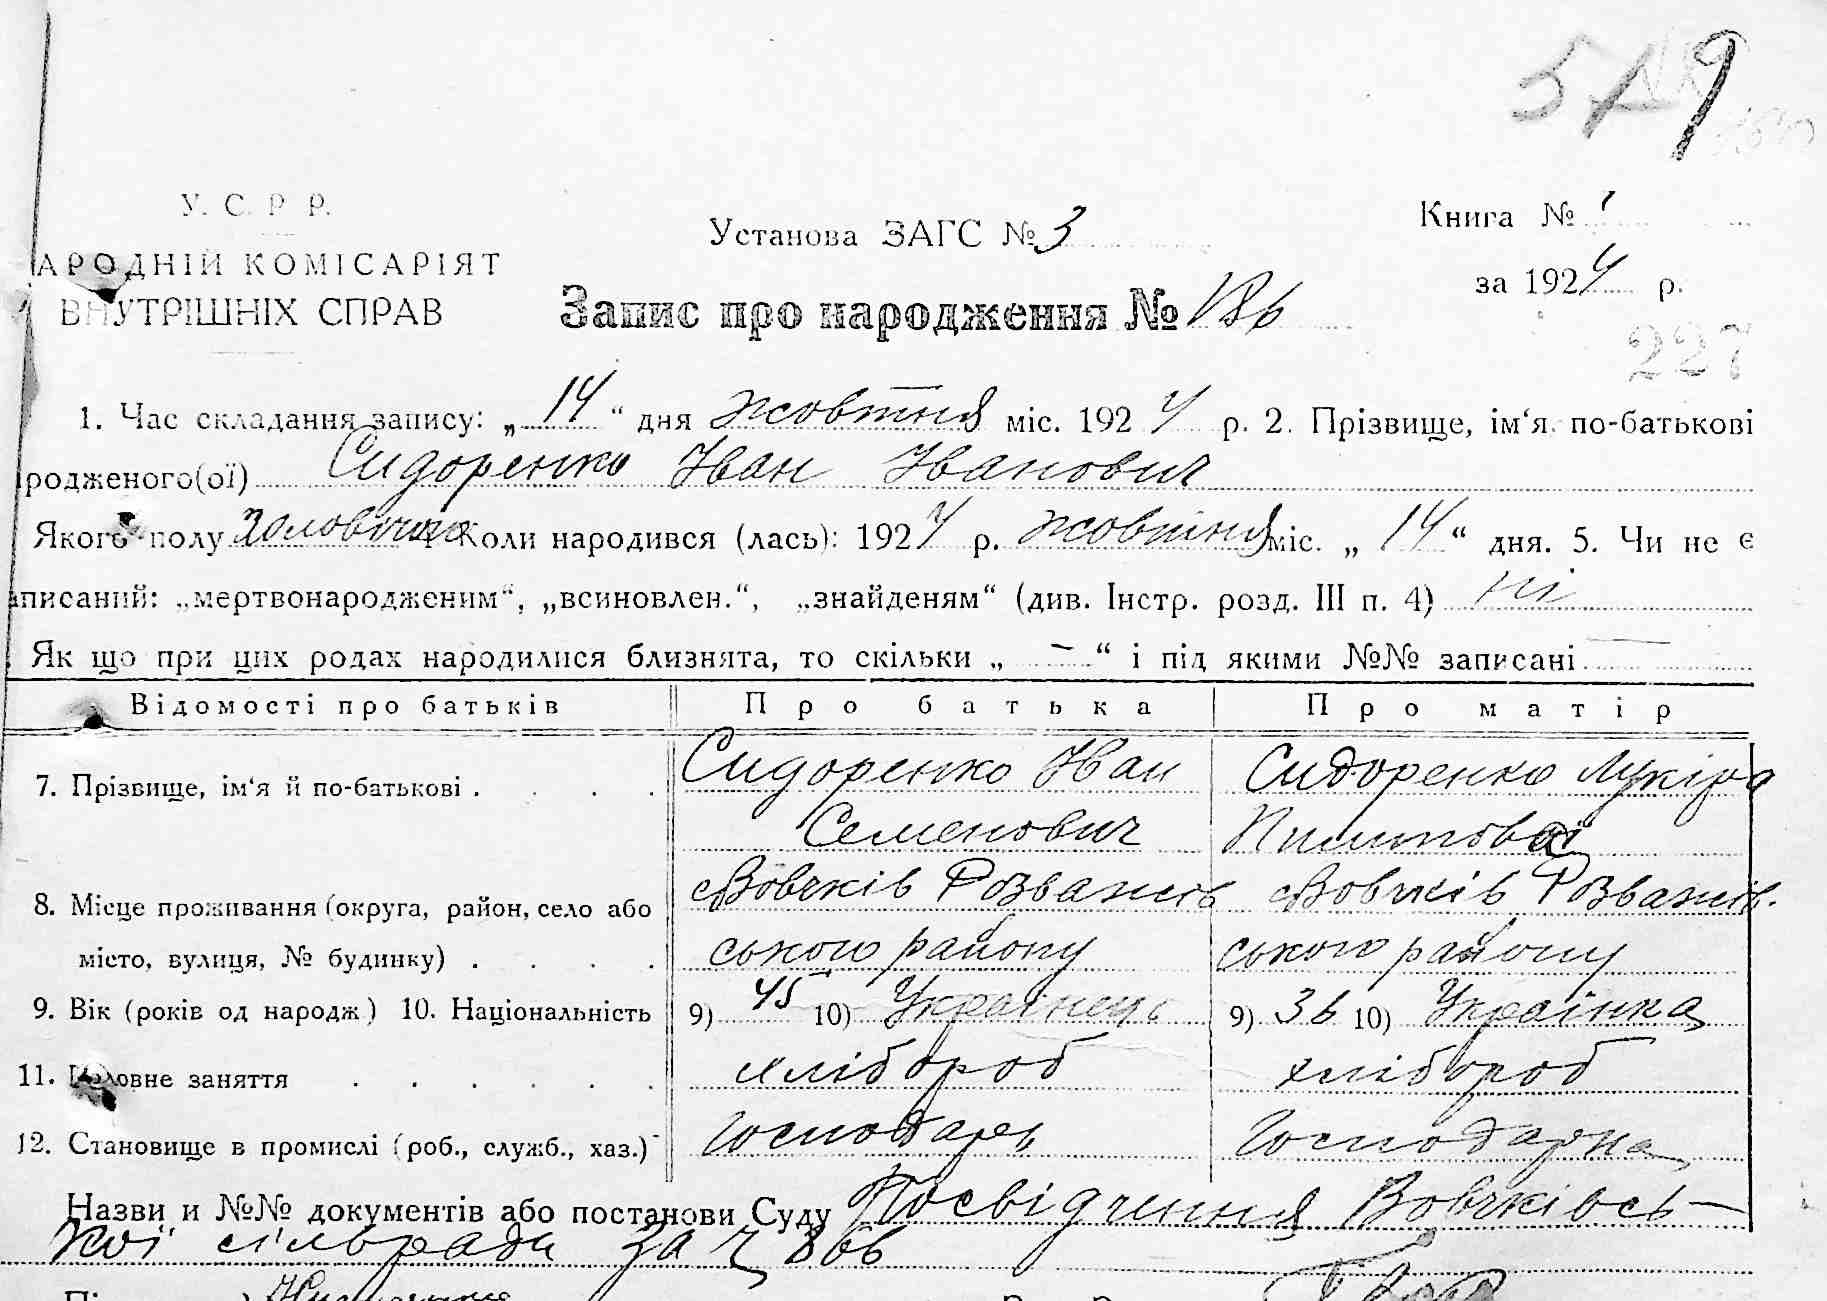 519
У. С. Р Р.
Установа ЗАГС № 3
Книга № 1
АРОДНІЙ КОМІСАРІЯТ
за 1924 р.
ВНУТРІШНІХ СПРАВ
Запис про народження № 186
227
1. Час складання запису: „ 14 “ дня жовтня міс. 1924 р. 2. Прізвище, ім‘я по-батькові
родженого(ої) Сидоренко Іван Іванович
Якого полу чоловічий Коли народився (лась): 1924 р. жовтня міс. „ 14 “ дня. 5. Чи не є
аписаний: „мертвонародженим“, „всиновлен.“, „знайденям“ (див. Інстр. розд. III п. 4) ні
Як що при цих родах народилися близнята, то скільки „ — “ і під якими №№ записані —
Відомості про батьків Про батька Про матір
7. Прізвище, ім‘я й по-батькові . . . . Сидоренко Іван Семенович Сидоренко Лукіра
8. Місце проживання (округа, район, село або місто, вулиця, № будинку) . . . . с Вовчків Розважівського району с Вовчків Розважів. ського району
9. Вік (років од народж) 10. Національність 9) 45 10) Українець 9) 36 10) Українка
11. Головне заняття . . . . . . хлібороб хлібороб
12. Становище в промислі (роб., служб., хаз.) Господарь Господарка
Назви и №№ документів або постанови Суду Посвідчення Вовчківсь-
кої сільради за ч 866